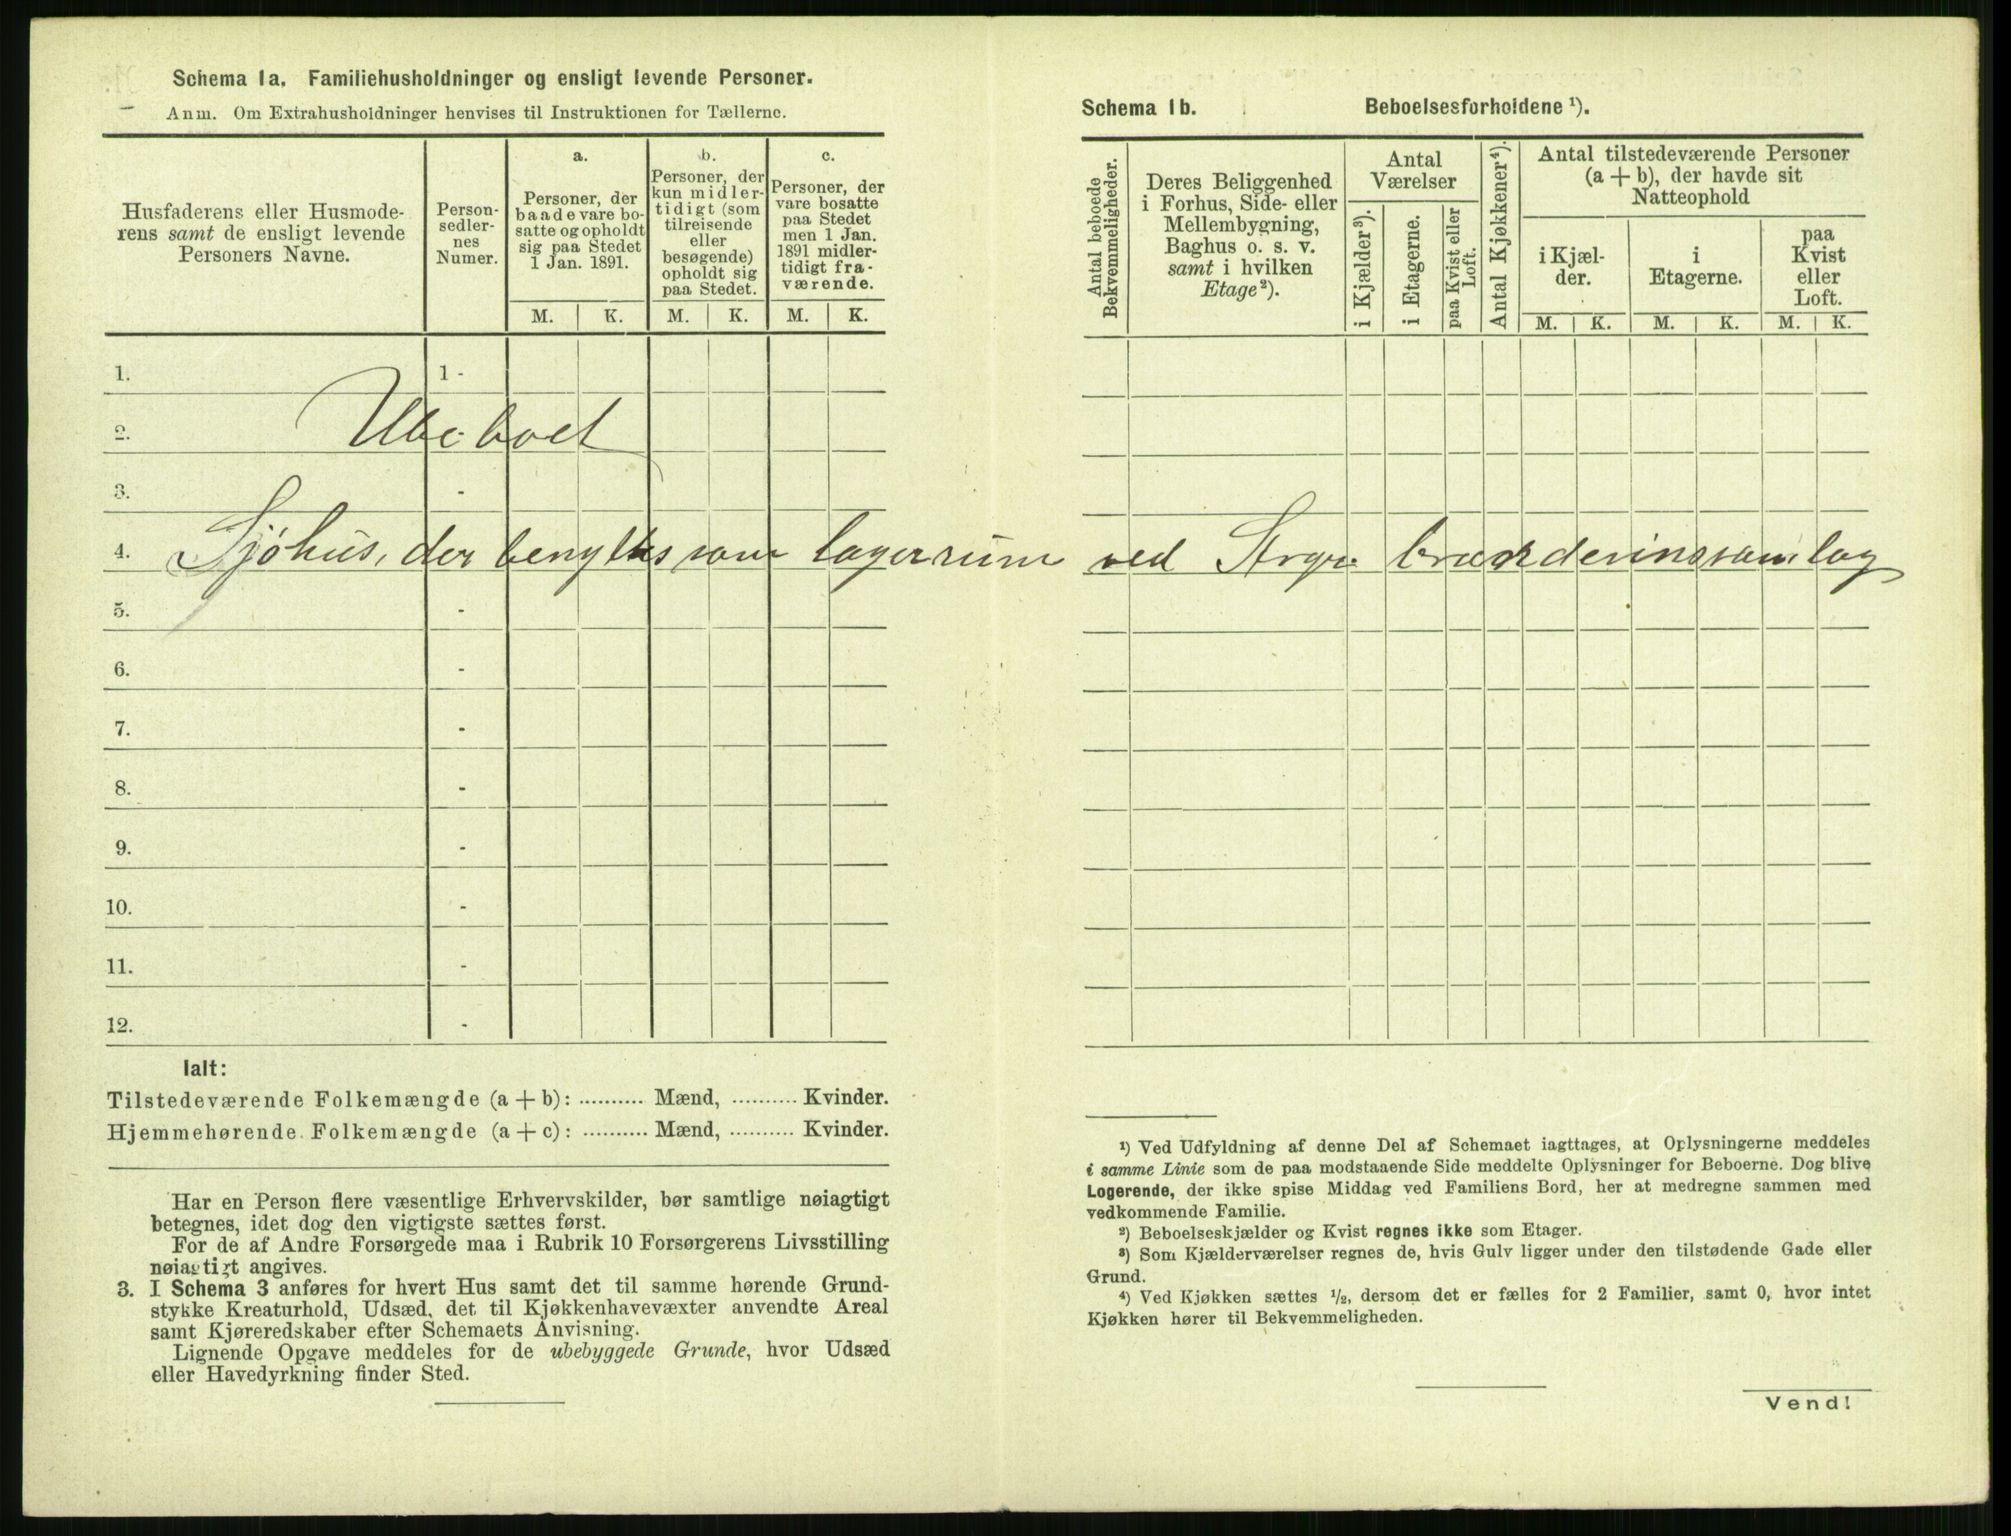 Schema 1a. Familiehusholdninger og ensligt levende Personer.
Anm. Om Extrahusholdninger henvises til Instruktionen for Tællerne.
Husfaderens eller Husmode-
rens samt de ensligt levende
Personers Navne.
Person-
sedler-
nes
Numer.
a.
Personer, der
baade vare bo-
satte og opholdt
sig paa Stedet
1 Jan. 1891.
b.
Personer, der
kun midler-
tidigt (som
tilreisende
eller
besøgende)
opholdt sig
paa Stedet.
c.
Personer, der
vare bosatte
paa Stedet
men 1 Jan.
1891 midler-
tidigt fra-
værende.
M. K. M. K. M. K.
1. 1 -
2. Ubeboet
3. -
4. Sjøhus, der benyttes som lagerrum ved
5. -
6. -
7. -
8. -
9. -
10. -
11. -
12. -
Ialt:
Tilstedeværende Folkemængde (a + b): .......... Mænd, .......... Kvinder.
Hjemmehørende Folkemængde (a + c): .......... Mænd, .......... Kvinder.
Har en Person flere væsentlige Erhvervskilder, bør samtlige nøiagtigt
betegnes, idet dog den vigtigste sættes først.
For de af Andre Forsørgede maa i Rubrik 10 Forsørgerens Livsstilling
nøiagtigt angives.
3. I Schema 3 anføres for hvert Hus samt det til samme hørende Grund-
stykke Kreaturhold, Udsæd, det til Kjøkkenhavevæxter anvendte Areal
samt Kjøreredskaber efter Schemaets Anvisning.
Lignende Opgave meddeles for de ubebyggede Grunde, hvor Udsæd
eller Havedyrkning finder Sted.
Schema 1b. Beboelsesforholdene ¹).
Antal beboede
Bekvemmeligheder.
Deres Beliggenhed
i Forhus, Side- eller
Mellembygning,
Baghus o. s. v.
samt i hvilken
Etage²).
Antal
Værelser
i Kjælder³).
i Etagerne.
paa Kvist eller
Loft.
Antal Kjøkkener⁴).
Antal tilstedeværende Personer
(a + b), der havde sit
Natteophold
i Kjæl-
der.
i
Etagerne.
paa
Kvist
eller
Loft.
M. K. M. K. M. K.
¹) Ved Udfyldning af denne Del af Schemaet iagttages, at Oplysningerne meddeles
i samme Linie som de paa modstaaende Side meddelte Oplysninger for Beboerne. Dog blive
Logerende, der ikke spise Middag ved Familiens Bord, her at medregne sammen med
vedkommende Familie.
²) Beboelseskjælder og Kvist regnes ikke som Etager.
³) Som Kjælderværelser regnes de, hvis Gulv ligger under den tilstødende Gade eller
Grund.
⁴) Ved Kjøkken sættes ½, dersom det er fælles for 2 Familier, samt 0, hvor intet
Kjøkken hører til Bekvemmeligheden.
Vend!